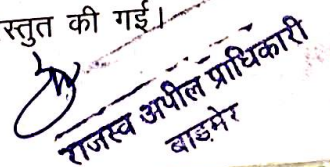 स्तुत की गई।
राजस्व अपील प्राधिकारी
बाड़मेर